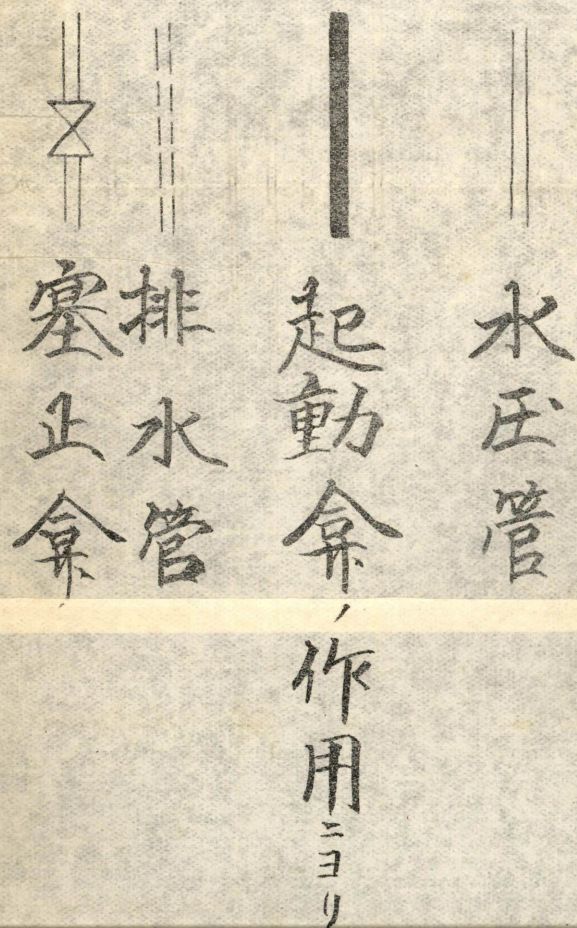 水压管
起動弇ノ作用ニヨリ
排水管
塞止弇